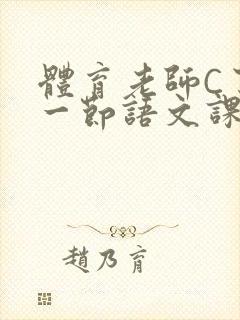 體育老師C
一節語文課
趙乃育